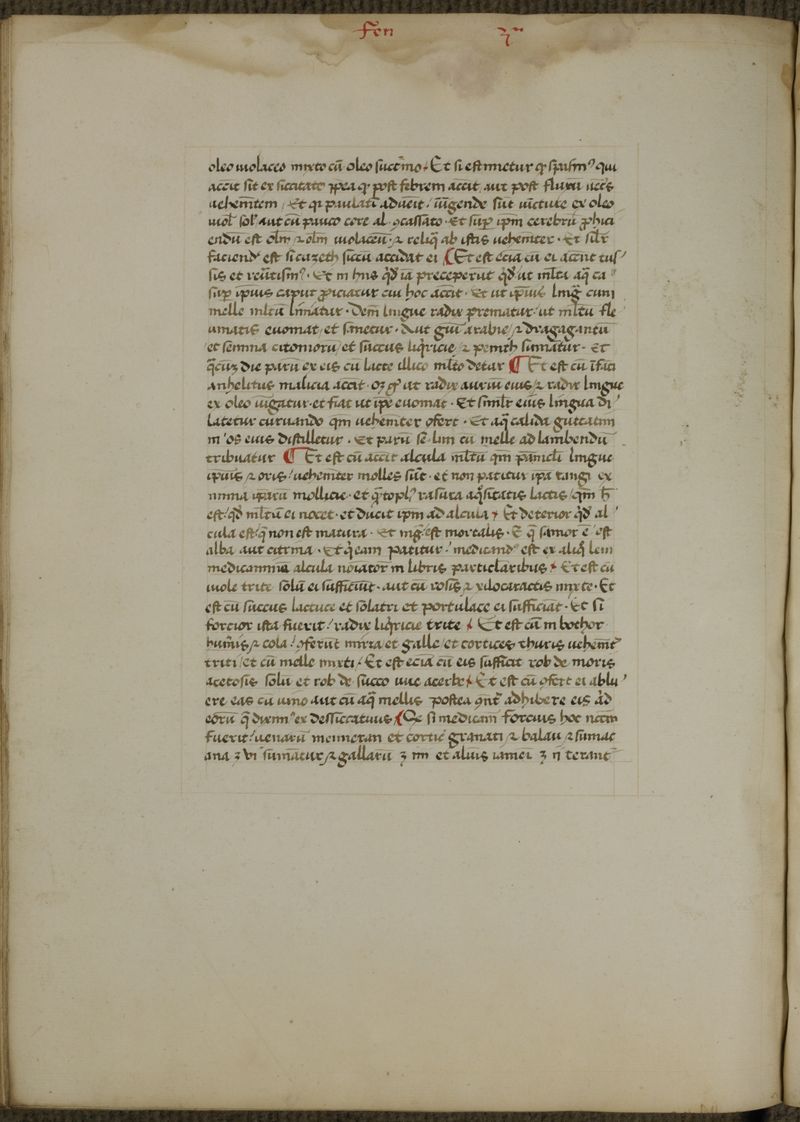 Fen 3ᵃ
oleo uiolaceo mixto cū oleo succīno. Et si estimetur qp spasmꝰ qui
accit sit ex siccitate ꝓpea qp post febrem accit aut post fluxū
uehemētem. Et qi paulati aduēit ūgende sūt iūcture ex oleo
uiol sol aut cū pauco cere al ꝯcassato. Et sup ipm cerebrū ꝓhici
endū est olm ⁊ olm uiolaceū ⁊ reliq ab istis uehemter. Et silr
faciend est si cuzeth siccū accidat ei Et est ecia cū ei accit tus
sis et reutism. Et in hiis qd ia preceperūt qd ut mlti aq ca
sup ipius caput ꝓiciatur cui hoc accit. Et ut ipius lingua cum
melle mltū liniatur. Dem lingue radix prematur ut mltū fle
umatis euomat et sanetur. Aut gūi arabic ⁊ dragagantū
et semina citonioru et succus liqricie ⁊ penith sumātur. Et
die parū ex eis cū lacte illico mlto detur Et est cū
anhelitus malicia accit. ut radix auriū eius ⁊ radix lingue
ex oleo ungatur et fiat ut ipe euomat. Et similr eius lingua di
latetur curuando qm uehemter ofert. Et aq calida guttatim
in os eius distilletur. Et parū se lini cū melle ad lambendū
tribuatur Et est cū accit alcula mltū qm lingue
ipius ⁊ oris uehemter molles sūt. et non patitur ipa tangi ex
nimia iparū mollicie. et rasura aqsitatis lactis qm h
est qd mltū ei nocet. et ducit ipm ad alcula Et deterior qd al
cula est q non est matura. Et nig est mortalis. E q sanior e est
alba aut citrina. Et q eam patitur medicand est ex aliq leui
medicaminū alcula noiator in libris particlaribus Et est cū
uiole trite solū ei sufficiūt. aut cū rosis ⁊ xilocaractis mixte. Et
est cū succus lactuce et solatri et portulace ei sufficiat. Et si
forcior ista fuerit radix liqricie trite Et est cū in bothor
humis ⁊ cola oferūt mirra et galle et cortices thuris uehemt
triti et cū melle mixti. Et est ecia cū eis sufficit rob de moris
acetosis solū et rob de succo uue acerbe Et est cū ofert ei ablu
ere eas cū uino aut cū aq mellis postea ont adhibere eis ad
eoru q diximꝰ ex dessiccatiuis Qe si medicani forcius hoc necin
fuerit uenarū memeran et cortic granati ⁊ balau ⁊ sumac
ana ʒ vi sumatur ⁊ gallarū ʒ iiii et aluis iameī ʒ ii terant